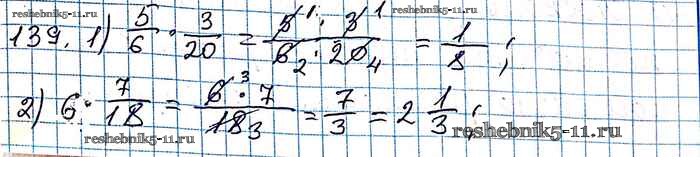 reshebnik5-11.ru
reshebnik5-11.ru
139. 1) 5/6 · 3/20 = (5 1 · 3 1)/(6 2 · 20 4) = 1/8 ;
2) 6 · 7/18 = (6 3 · 7)/(18 3) = 7/3 = 2 1/3 ;
reshebnik5-11.ru
reshebnik5-11.ru